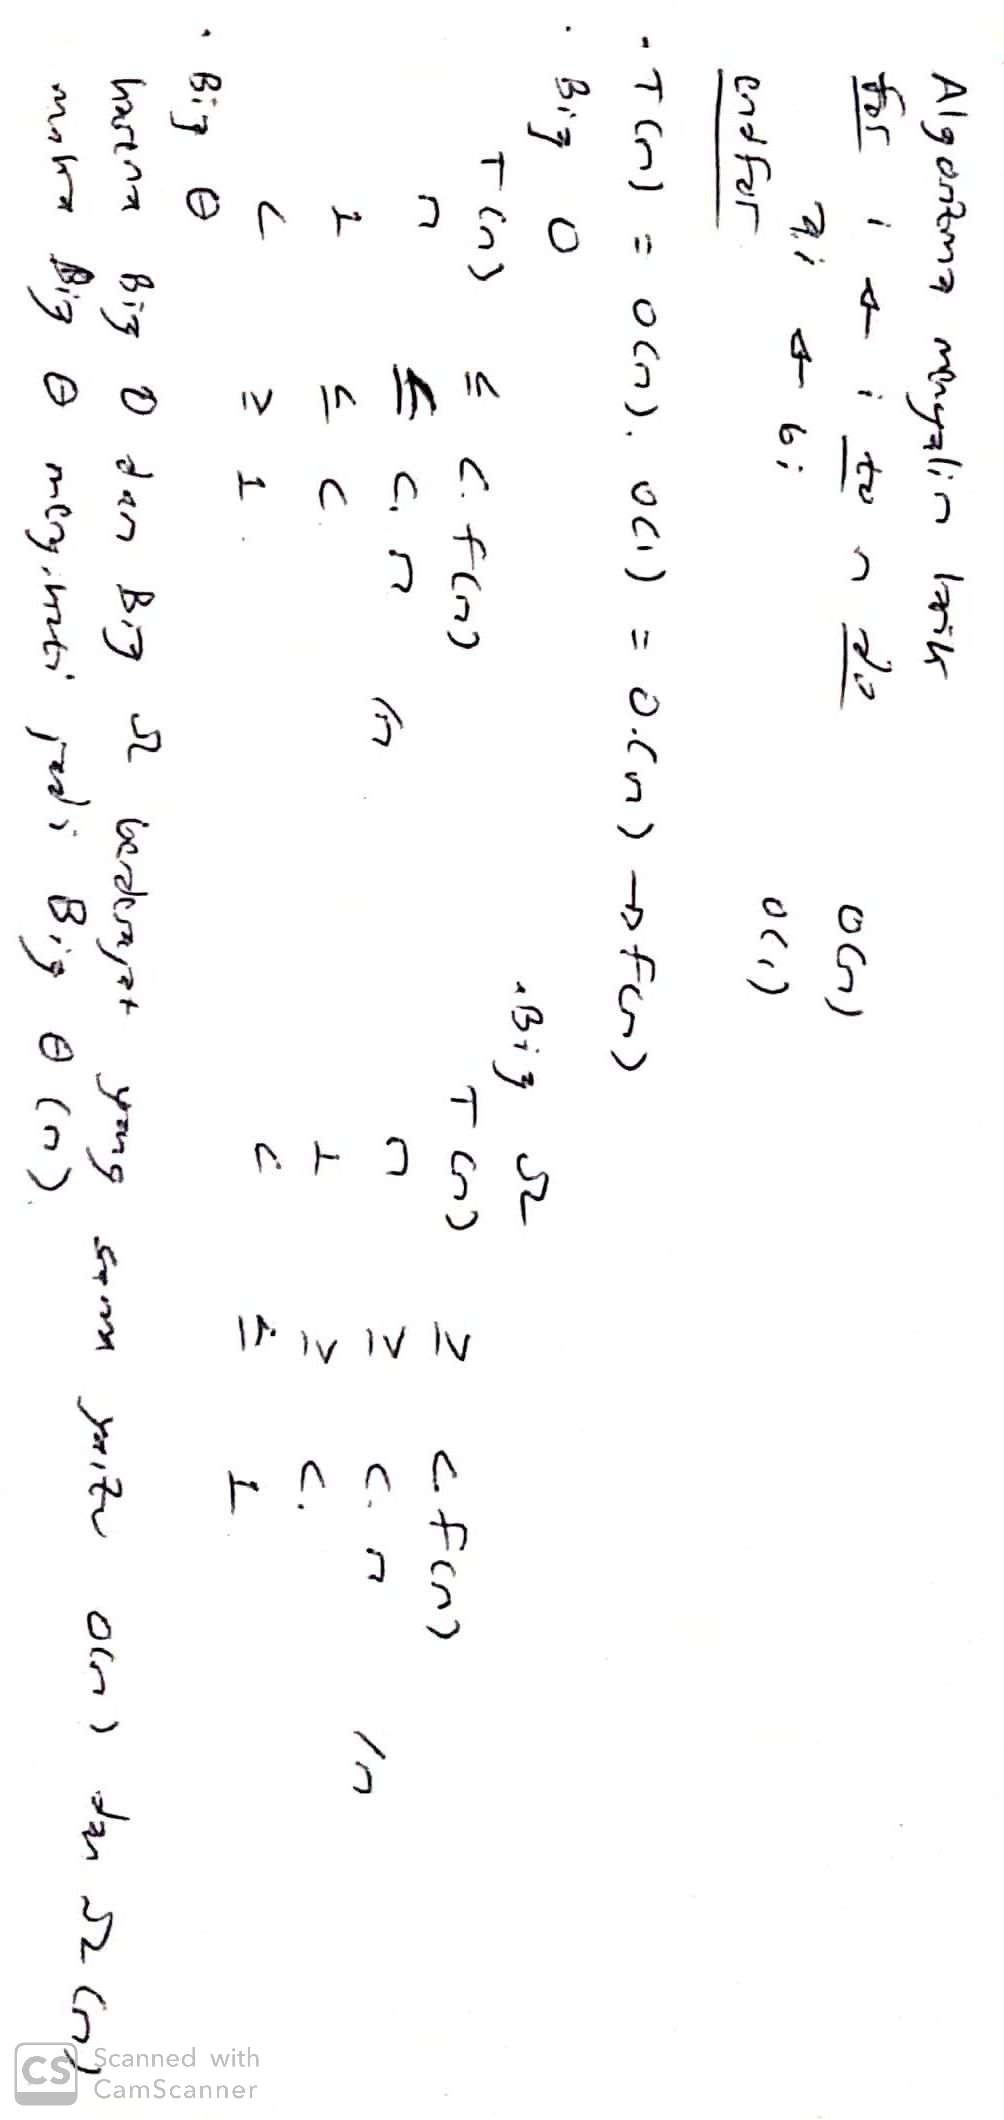 Algoritma menyalin larik
for i ← i to n do O(n)
ai ← bi O(1)
endfor
- T(n) = O(n). O(1) = O.(n) → f(n)
• Big O
T(n) ≤ C. f(n)
n ≤ C. n /n
1 ≤ C.
C ≥ 1.
• Big Ω
T(n) ≥ C. f(n)
n ≥ C. n /n
1 ≥ C.
C ≤ 1.
• Big Θ
karena Big O dan Big Ω berderajat yang sama yaitu O(n) dan Ω(n)
maka Big Θ mengikuti jadi Big Θ(n).
CS Scanned with
CamScanner